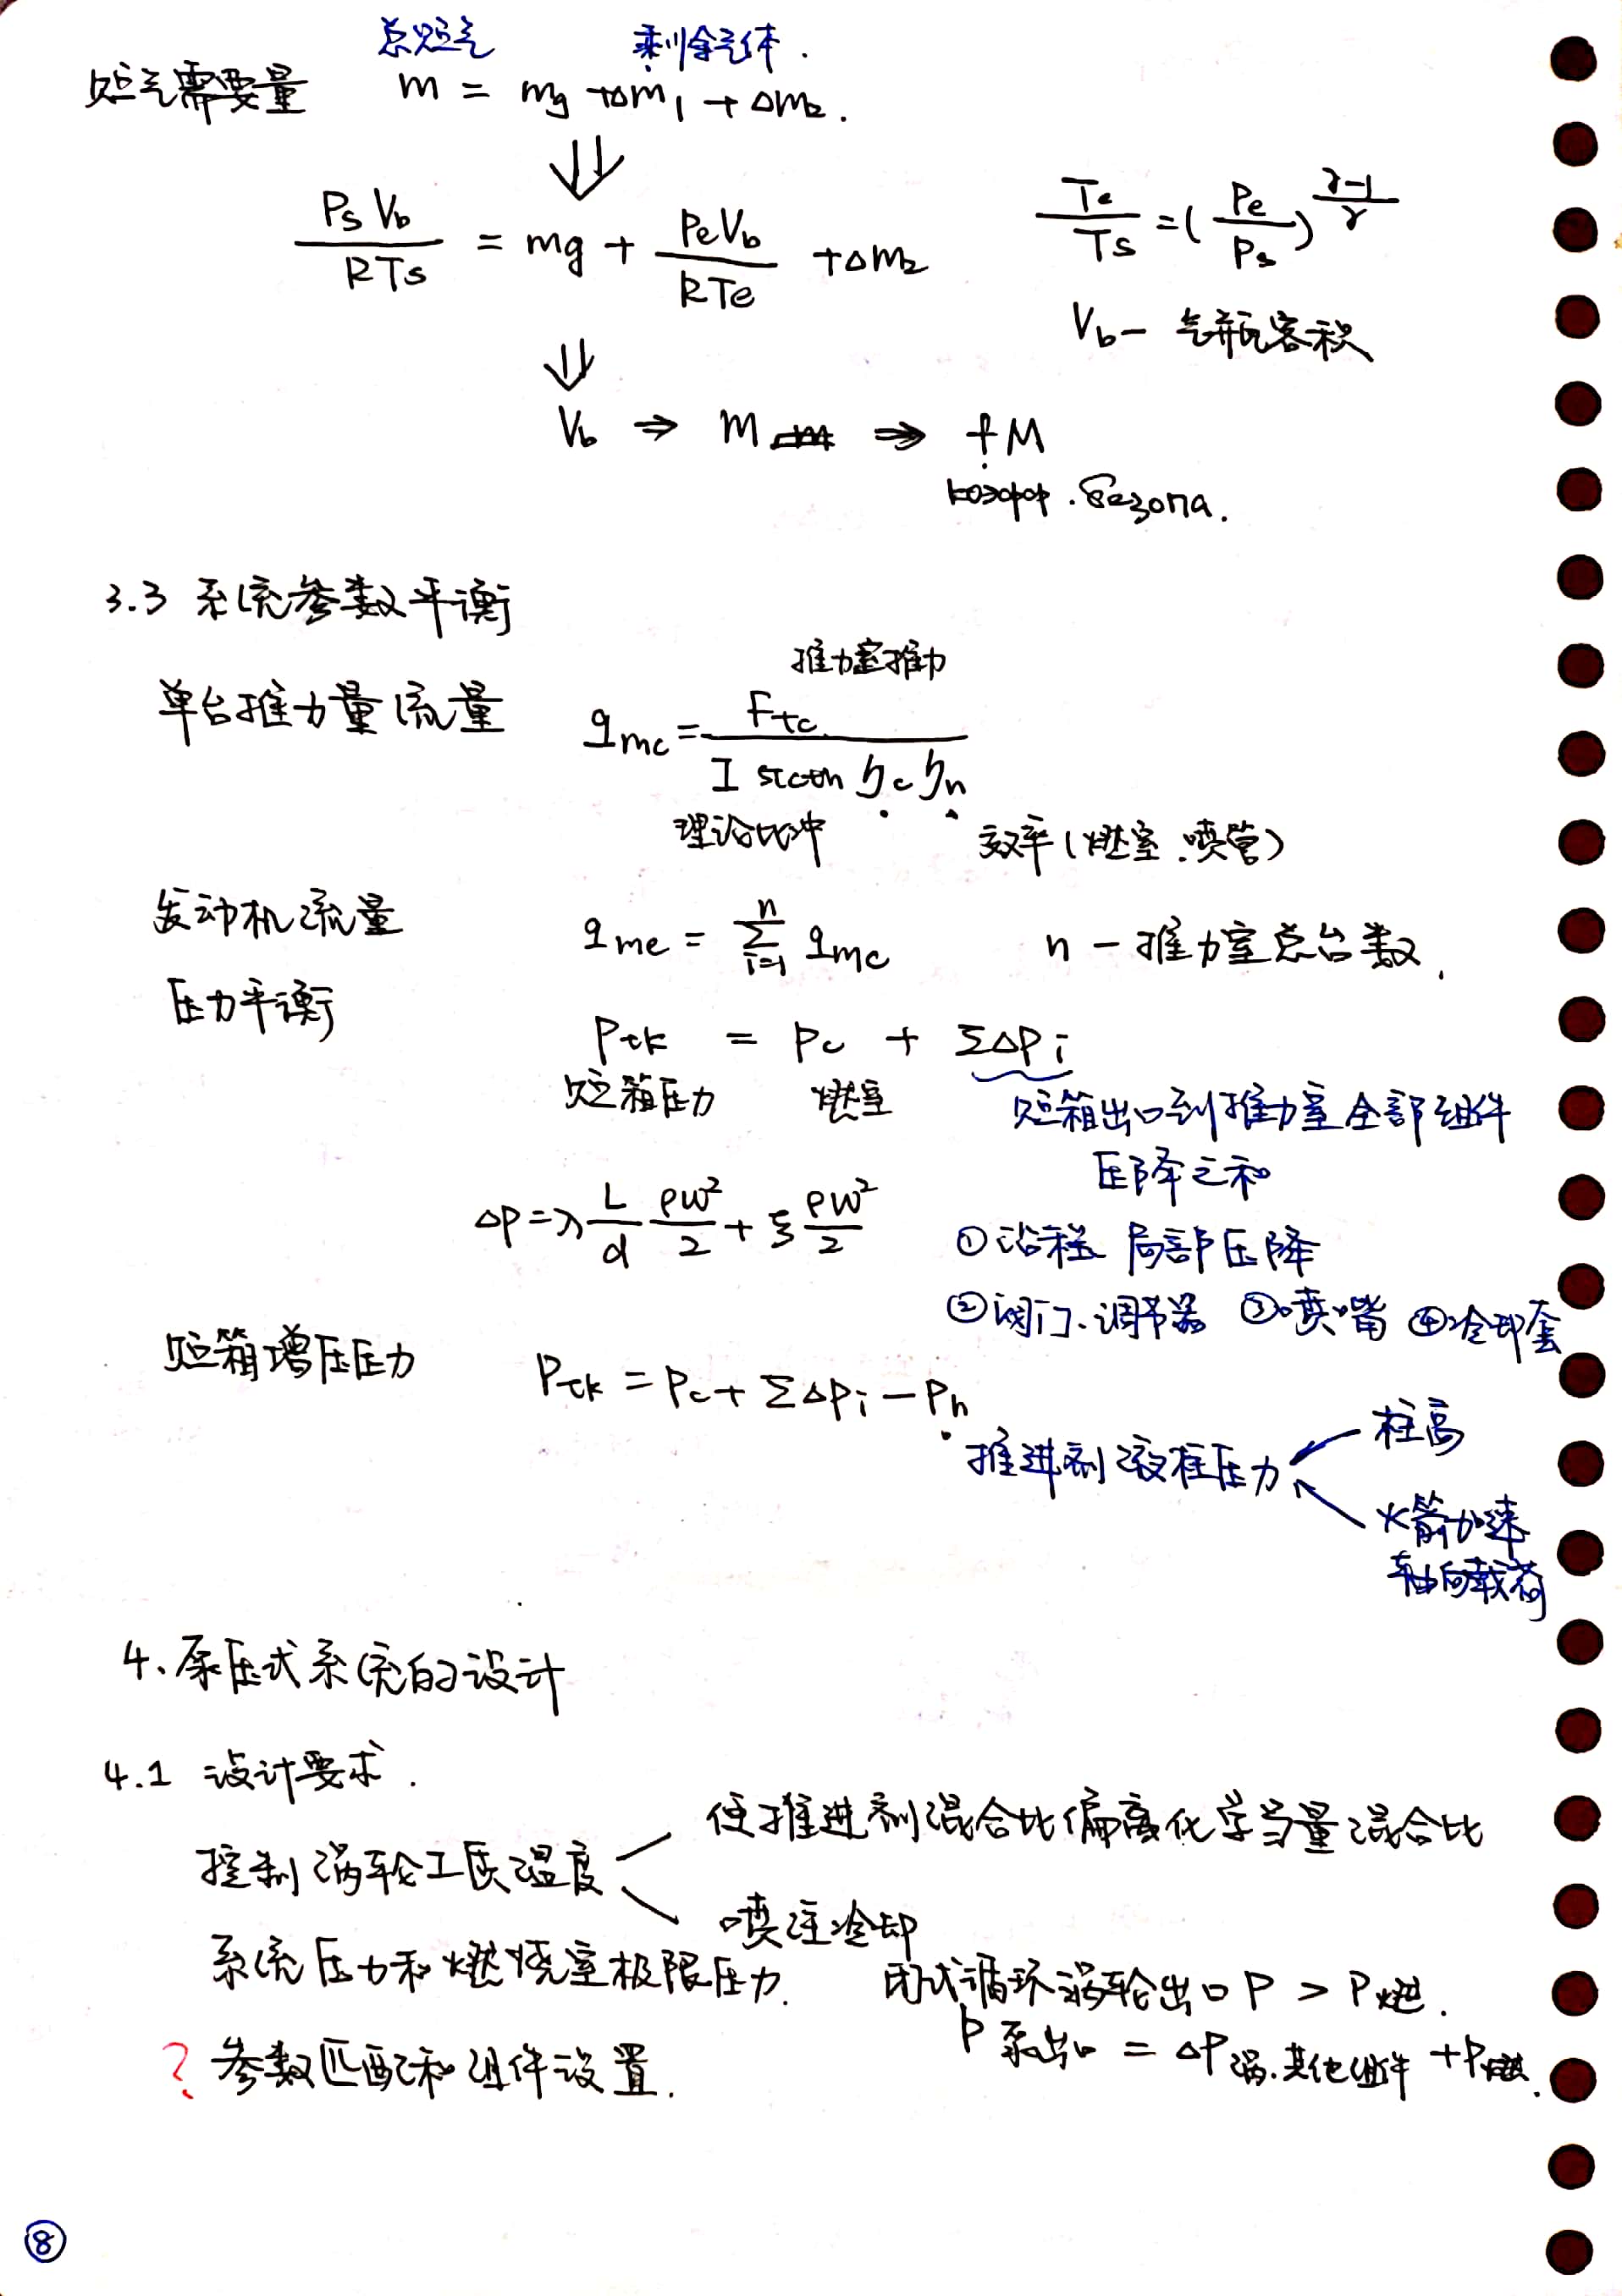 总贮气 剩余气体.
贮气需要量 m = mg + Δm1 + Δm2.
⇓
PsVb/RTs = mg + PeVb/RTe + Δm2 Te/Ts = (Pe/Ps)^((γ-1)/γ)
Vb — 气瓶容积
⇓
Vb ⇒ m ⇒ fM
коэфф. безопа.
3.3 系统参数平衡
推力室推力
单台推力量流量 qmc = Ftc/(Istcth ηc ηn)
理论比冲 效率(燃室.喷管)
发动机流量 qme = Σ(i=1→n) qmc n — 推力室总台数.
压力平衡 Ptk = Pc + ΣΔPi
贮箱压力 燃室 贮箱出口到推力室全部组件
压降之和
ΔP = λ L/d ρw²/2 + ξ ρw²/2 ①沿程 局部压降
②阀门.调节器 ③喷嘴 ④冷却套
贮箱增压压力 Ptk = Pc + ΣΔPi − Ph
推进剂液柱压力 柱高
火箭加速
轴向载荷
4、泵压式系统的设计
4.1 设计要求.
使推进剂混合比偏离化学当量混合比
控制涡轮工质温度
喷注冷却
系统压力和燃烧室极限压力. 闭式循环涡轮出口P > P燃.
P泵出口 = ΔP涡.其他组件 + P燃.
? 参数匹配和组件设置.
⑧